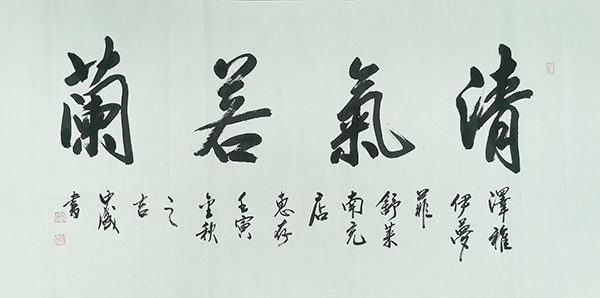 清氣若蘭
澤雅
伊夢
菲
舒萊
南充
店
惠存
壬寅
金秋
之
吉
書